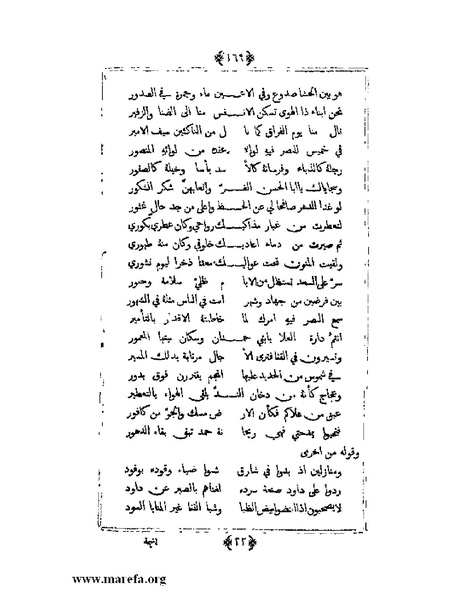 ﴿١٦٩﴾
هو بين الحشا صدوع وفي الاعـــين ماء وجمرة في الصدور
نحن ابناء ذا الهوى تسكن الانـــفس منا الى الضنا والزفير
نال منا يوم الفراق كما نا ل من الناكثين سيف الامير
في خميس للنصر فيه لواء من لوائه المنصور
رجلة كالدباء وفرسانه كالأ سد بأسا وخيله كالصقور
وسجاياك يا ابا الحسن الغـــر شكر الشكور
لو غدا الدهر عن الحـــظ وأعلى من جد حال
لتعطرت من غبار مذاكيـــك رواحي وكان عطري بكوري
ثم صيرت من دماء اعاديـــك خلوقي وكان منه طهوري
ولقيت المنون تحت عواليـــك ذخرا ليوم نشوري
سر على السعد الايا م ظلي سلامة
بين فرضين من جهاد وشهر انت في الناس مثله في الشهور
سمع النصر فيه امرك لما الاقدار بالتأمير
انتم دارة العلا يا بني حمـــدان وسكان بيتها المعمور
وتسيرون في القنا فترى الآ جال مرتابة بذلك المسير
في شموس من الحديد عليها فوق بدور
وعجاج كأنه من دخان النـــد الهواء بالتعطير
عبق من علاكم فكأن الار ض مسك والجو من كافور
بمدحتي فهي ريحا نة حمد تبقى بقاء الدهور
وقوله من اخرى
ومنازلين اذا بدوا في شارق ضياء وقوده بوقود
ردوا على داود صنعة سرده بالصبر عن داود
لا يصحبون اذا بيض الظبا وشبا القنا غير المنايا السود
﴿٢٢﴾
يتيمة
www.marefa.org